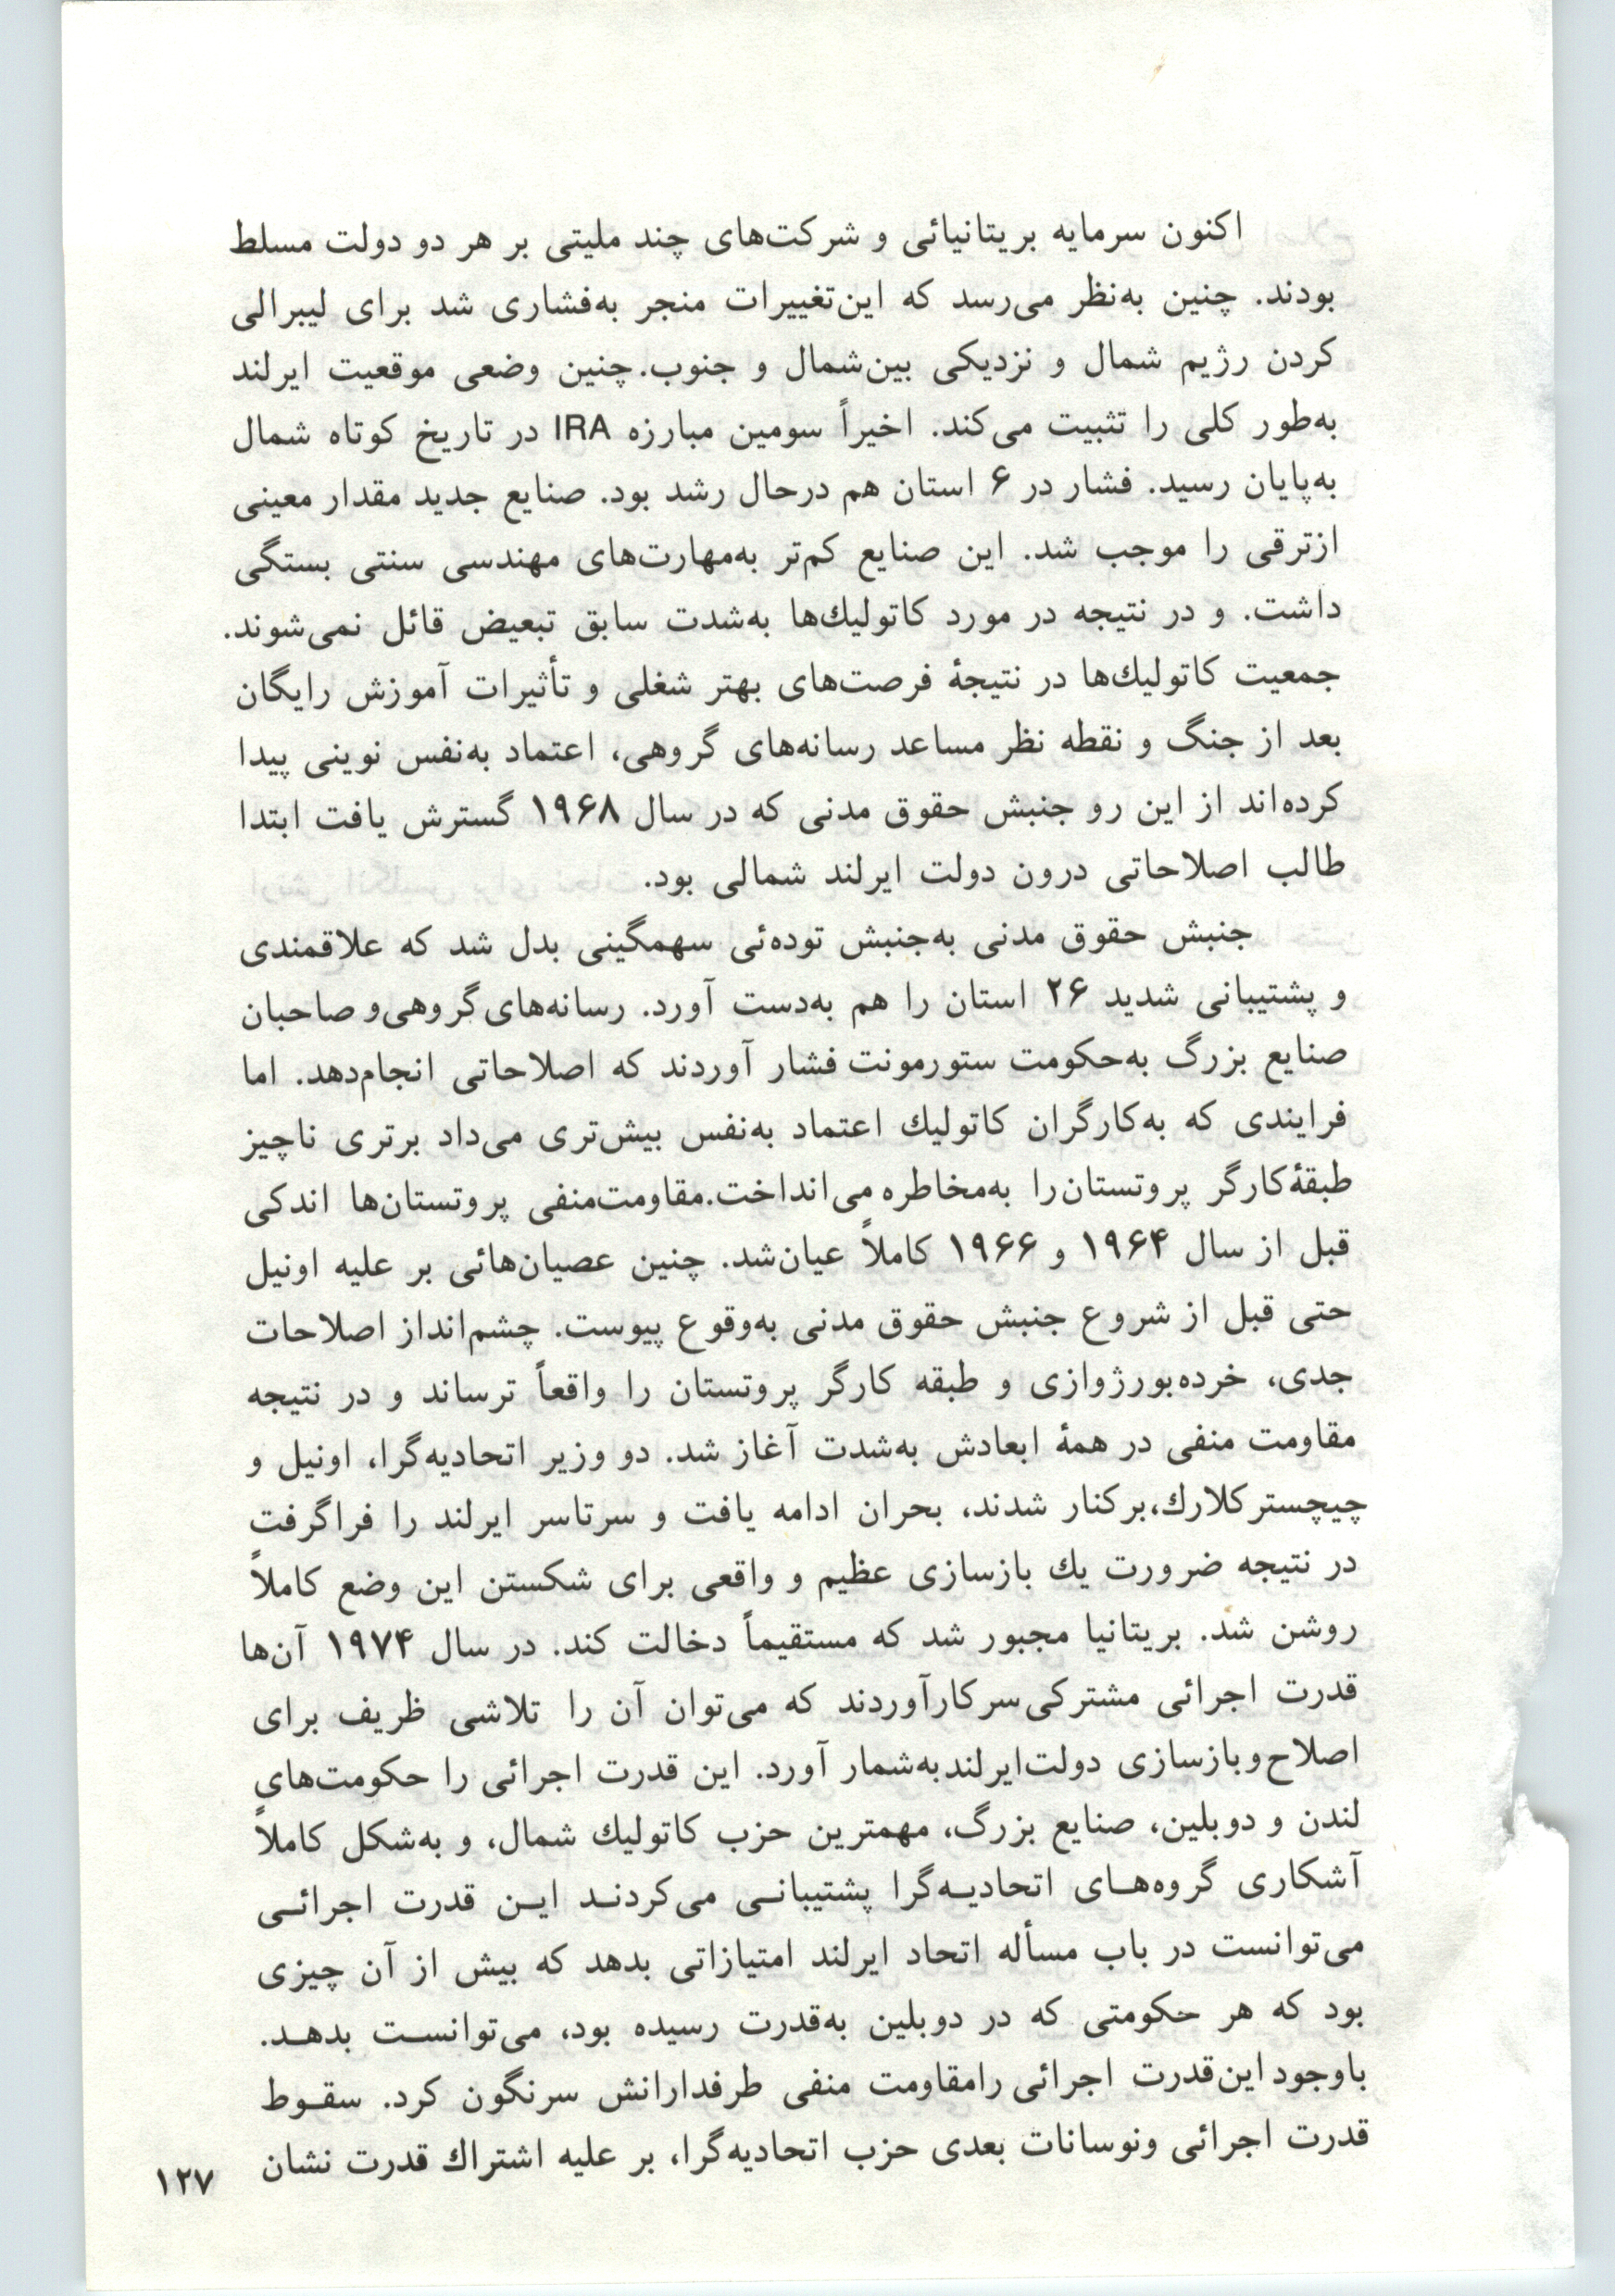 اکنون سرمایه بریتانیائی و شرکت‌های چند ملیتی بر هر دو دولت مسلط
بودند. چنین به‌نظر می‌رسد که این‌تغییرات منجر به‌فشاری شد برای لیبرالی
کردن رژیم شمال و نزدیکی بین‌شمال و جنوب. چنین وضعی موقعیت ایرلند
به‌طور کلی را تثبیت می‌کند. اخیراً سومین مبارزه IRA در تاریخ کوتاه شمال
به‌پایان رسید. فشار در ۶ استان هم درحال رشد بود. صنایع جدید مقدار معینی
ازترقی را موجب شد. این صنایع کم‌تر به‌مهارت‌های مهندسی سنتی بستگی
داشت. و در نتیجه در مورد کاتولیك‌ها به‌شدت سابق تبعیض قائل نمی‌شوند.
جمعیت کاتولیك‌ها در نتیجهٔ فرصت‌های بهتر شغلی و تأثیرات آموزش رایگان
بعد از جنگ و نقطه نظر مساعد رسانه‌های گروهی، اعتماد به‌نفس نوینی پیدا
کرده‌اند از این رو جنبش حقوق مدنی که در سال ۱۹۶۸ گسترش یافت ابتدا
طالب اصلاحاتی درون دولت ایرلند شمالی بود.
جنبش حقوق مدنی به‌جنبش توده‌ئی سهمگینی بدل شد که علاقمندی
و پشتیبانی شدید ۲۶ استان را هم به‌دست آورد. رسانه‌های گروهی و صاحبان
صنایع بزرگ به‌حکومت ستورمونت فشار آوردند که اصلاحاتی انجام‌دهد. اما
فرایندی که به‌کارگران کاتولیك اعتماد به‌نفس بیش‌تری می‌داد برتری ناچیز
طبقهٔ کارگر پروتستان‌را به‌مخاطره می‌انداخت. مقاومت‌منفی پروتستان‌ها اندکی
قبل از سال ۱۹۶۴ و ۱۹۶۶ کاملاً عیان‌شد. چنین عصیان‌هائی بر علیه اونیل
حتی قبل از شروع جنبش حقوق مدنی به‌وقوع پیوست. چشم‌انداز اصلاحات
جدی، خرده‌بورژوازی و طبقه کارگر پروتستان را واقعاً ترساند و در نتیجه
مقاومت منفی در همهٔ ابعادش به‌شدت آغاز شد. دو وزیر اتحادیه‌گرا، اونیل و
چیچستر کلارك، برکنار شدند، بحران ادامه یافت و سرتاسر ایرلند را فراگرفت
در نتیجه ضرورت یك بازسازی عظیم و واقعی برای شکستن این وضع کاملاً
روشن شد. بریتانیا مجبور شد که مستقیماً دخالت کند. در سال ۱۹۷۴ آن‌ها
قدرت اجرائی مشترکی سرکارآوردند که می‌توان آن را تلاشی ظریف برای
اصلاح و بازسازی دولت‌ایرلند به‌شمار آورد. این قدرت اجرائی را حکومت‌های
لندن و دوبلین، صنایع بزرگ، مهمترین حزب کاتولیك شمال، و به‌شکل کاملاً
آشکاری گروه‌هـای اتحادیـه‌گرا پشتیبانـی می‌کردنـد ایـن قدرت اجرائـی
می‌توانست در باب مسأله اتحاد ایرلند امتیازاتی بدهد که بیش از آن چیزی
بود که هر حکومتی که در دوبلین به‌قدرت رسیده بود، می‌توانسـت بدهـد.
باوجود این‌قدرت اجرائی رامقاومت منفی طرفدارانش سرنگون کرد. سقـوط
قدرت اجرائی ونوسانات بعدی حزب اتحادیه‌گرا، بر علیه اشتراك قدرت نشان
۱۲۷